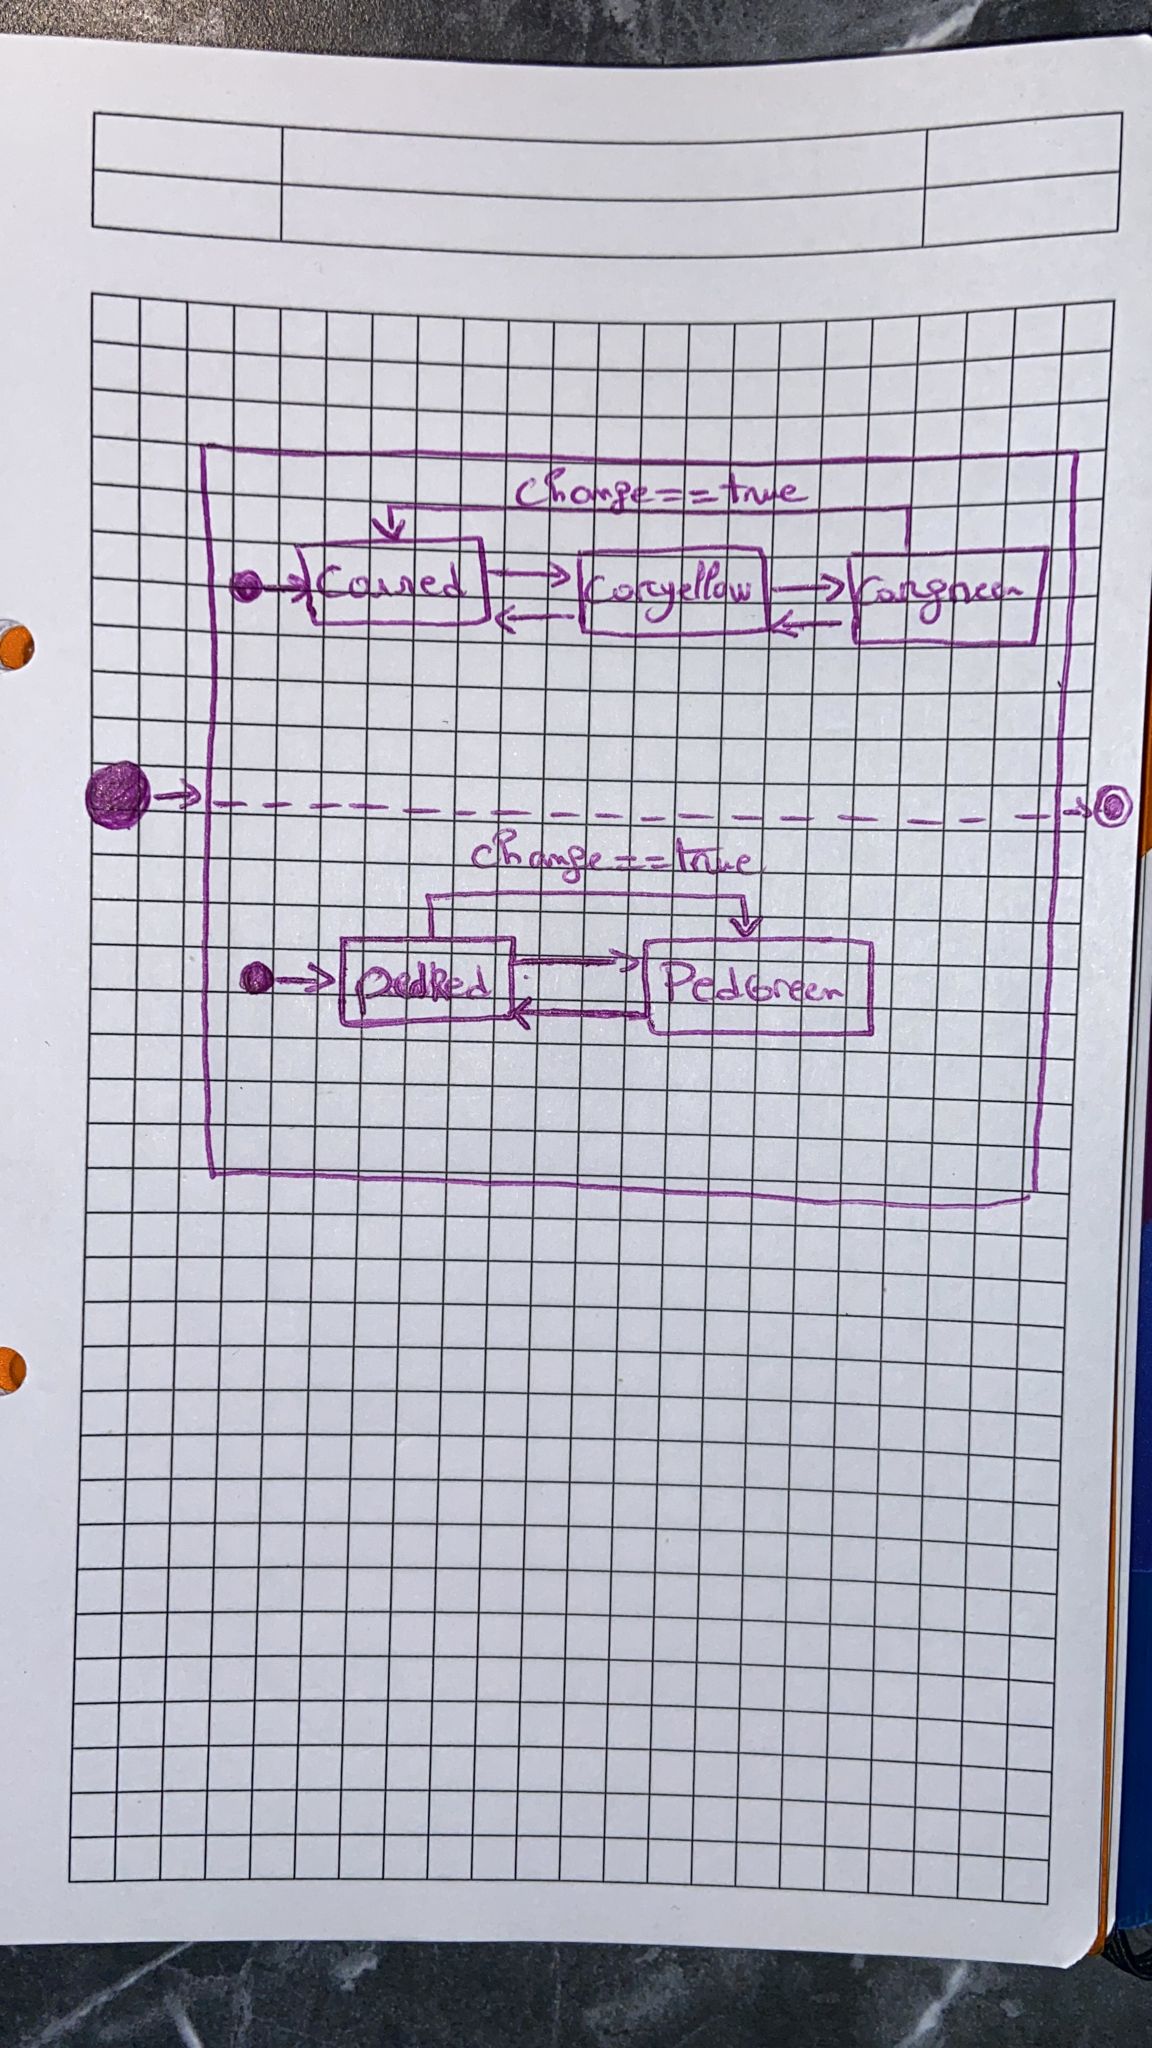 change==true
Carred
Caryellow
Cargreen
change==true
pedRed
PedGreen